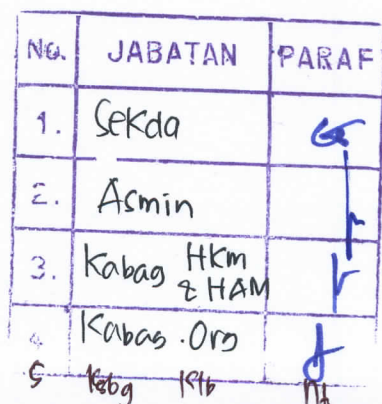 NO. JABATAN PARAF
1. Sekda
2. Asmin
3. Kabag HKm
& HAM
4 Kabag.Org
5